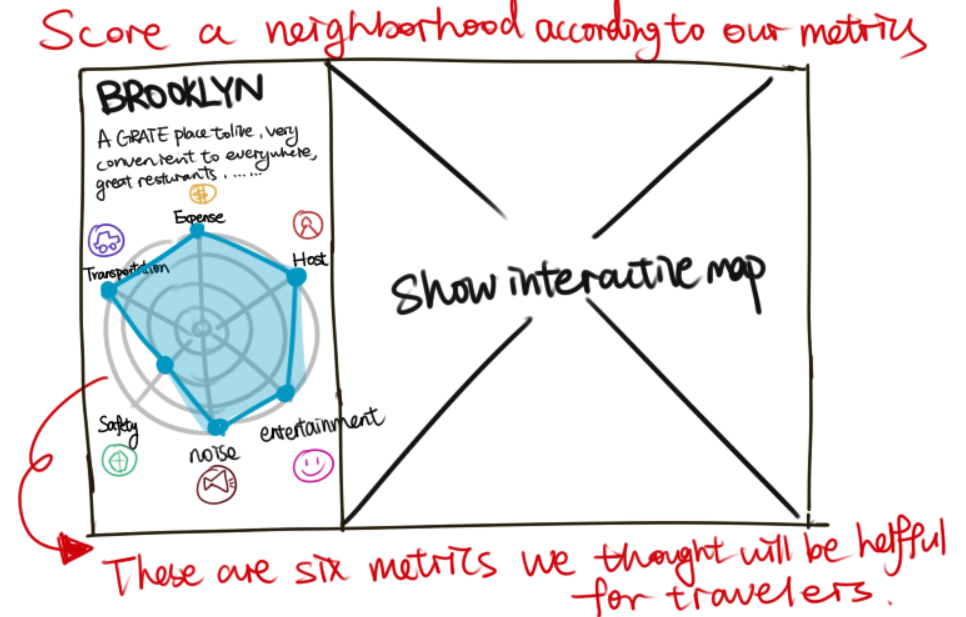 Score a neighborhood according to our metrics
BROOKLYN
A GRATE place to live, very
convenient to everywhere,
great resturants. ......
$
Expense
Host
Transportation
Show interactive map
Safety
entertainment
noise
These are six metrics we thought will be helpful
for travelers.